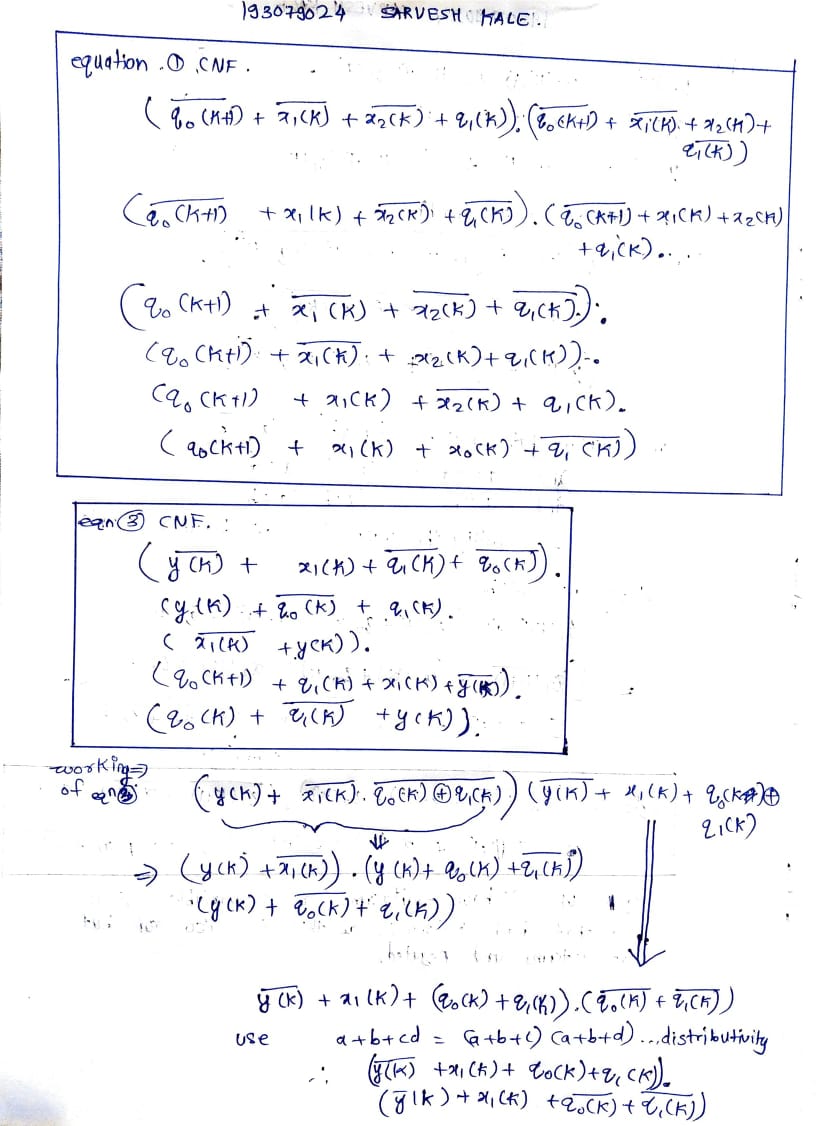 193079024 SARVESH KALE.
equation ① CNF.
( q̅₀(̅k̅+̅1̅)̅ + x̅₁(̅k̅)̅ + x̅₂(̅k̅)̅ + q₁(k)).(q̅₀(̅k̅+̅1̅)̅ + x̅₁(̅k̅)̅ + x₂(k) +
q̅₁(̅k̅)̅ )
(q̅₀(̅k̅+̅1̅)̅ + x₁(k) + x̅₂(̅k̅)̅ + q̅₁(̅k̅)̅).(q̅₀(̅k̅+̅1̅)̅ + x₁(k) + x₂(k)
+q₁(k)...
(q₀(k+1) + x̅₁(̅k̅)̅ + x̅₂(̅k̅)̅ + q̅₁(̅k̅)̅).
(q₀(k+1) + x̅₁(̅k̅)̅ + x₂(k) + q₁(k)).
(q₀(k+1) + x₁(k) + x̅₂(̅k̅)̅ + q₁(k).
(q₀(k+1) + x₁(k) + x₀(k) + q̅₁(̅k̅)̅)
eqn ③ CNF. :
(y̅(̅k̅)̅ + x₁(k) + q̅₁(̅k̅)̅ + q̅₀(̅k̅)̅).
(y(k) + q̅₀(̅k̅)̅ + q₁(k).
( x̅₁(̅k̅)̅ + y(k)).
(q₀(k+1) + q₁(k) + x₁(k) + y̅(̅k̅)̅).
(q₀(k) + q̅₁(̅k̅)̅ + y(k)).
working ⇒
of eqn ③ (y(k) + x̅₁(̅k̅)̅.q̅₀(̅k̅)̅ ̅⊕̅ ̅q̅₁(̅k̅)̅) (y̅(̅k̅)̅ + x₁(k) + q₀(k) ⊕
q₁(k)
⇒ (y(k) + x̅₁(̅k̅)̅).(y(k) + q₀(k) + q̅₁(̅k̅)̅)
(y(k) + q̅₀(̅k̅)̅ + q₁(k))
y̅(̅k̅)̅ + x₁(k) + (q₀(k) + q₁(k)).(q̅₀(̅k̅)̅ + q̅₁(̅k̅)̅)
use a+b+cd = (a+b+c) (a+b+d) ...distributivity
∴ (y̅(̅k̅)̅ + x₁(k) + q₀(k) + q₁(k)).
(y̅(k) + x₁(k) + q̅₀(̅k̅)̅ + q̅₁(̅k̅)̅)